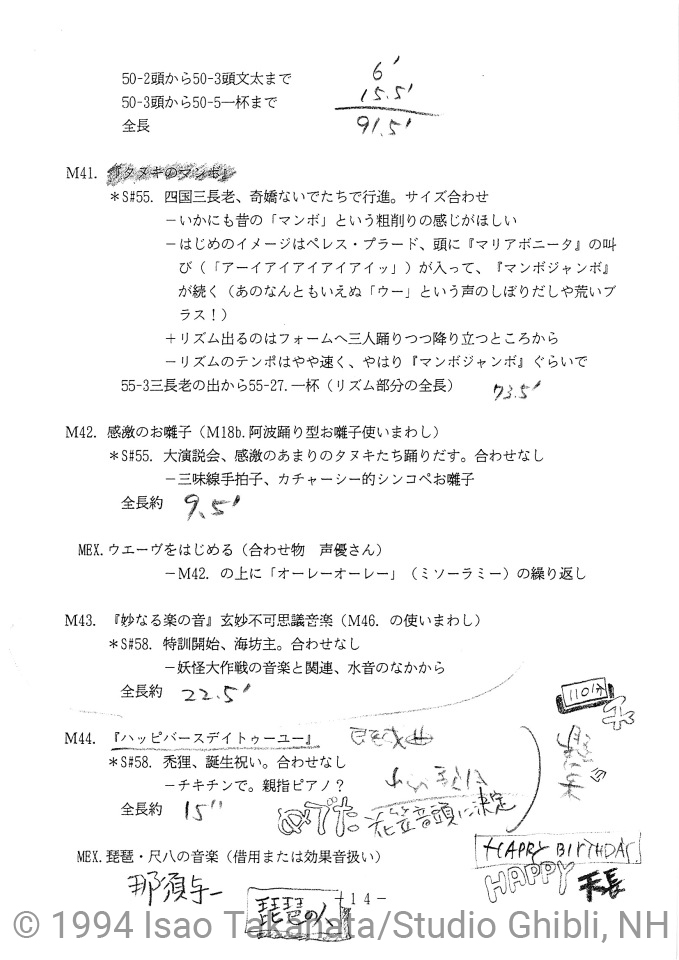 50-2頭から50-3頭文太まで 6'
50-3頭から50-5一杯まで 15.5'
全長 91.5'
M41. 『タヌキのマンボ』
＊S#55. 四国三長老、奇嬌ないでたちで行進。サイズ合わせ
－いかにも昔の「マンボ」という粗削りの感じがほしい
－はじめのイメージはペレス・プラード、頭に『マリアボニータ』の叫
び（「アーイアイアイアイアイッ」）が入って、『マンボジャンボ』
が続く（あのなんともいえぬ「ウー」という声のしぼりだしや荒いブ
ラス！）
＋リズム出るのはフォームへ三人踊りつつ降り立つところから
－リズムのテンポはやや速く、やはり『マンボジャンボ』ぐらいで
55-3三長老の出から55-27.一杯（リズム部分の全長） 73.5'
M42. 感激のお囃子（M18b.阿波踊り型お囃子使いまわし）
＊S#55. 大演説会、感激のあまりのタヌキたち踊りだす。合わせなし
－三味線手拍子、カチャーシー的シンコペお囃子
全長約 9.5'
MEX.ウエーヴをはじめる（合わせ物　声優さん）
－M42. の上に「オーレーオーレー」（ミソーラミー）の繰り返し
M43. 『妙なる楽の音』玄妙不可思議音楽（M46. の使いまわし）
＊S#58. 特訓開始、海坊主。合わせなし
－妖怪大作戦の音楽と関連、水音のなかから
全長約 22.5'
110分
M44. 『ハッピバースデイトゥーユー』
＊S#58. 禿狸、誕生祝い。合わせなし
－チキチンで。親指ピアノ？
めでた 花笠音頭に決定
全長約 15"
HAPPY BIRTHDAY
HAPPY
MEX.琵琶・尺八の音楽（借用または効果音扱い）
那須与一
琵琶の
－14－
© 1994 Isao Takahata/Studio Ghibli, NH